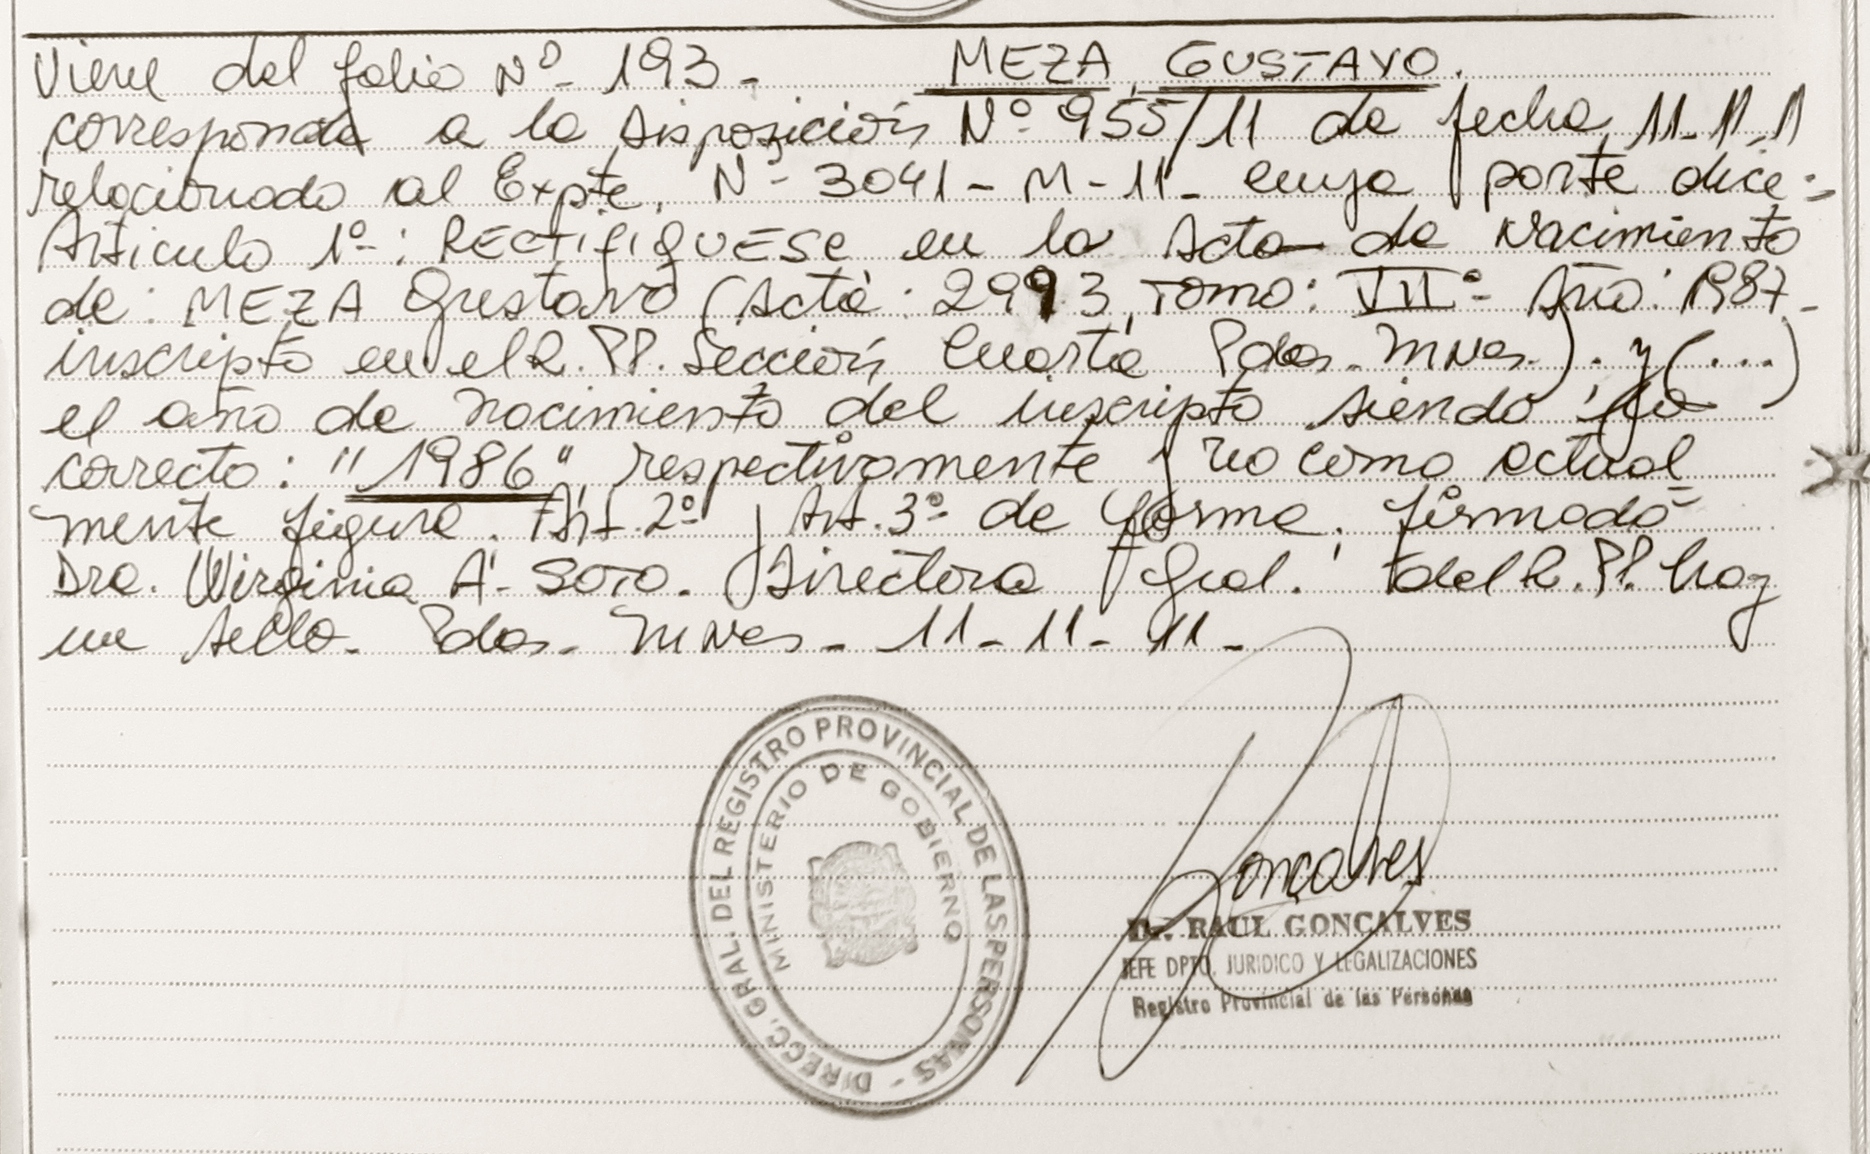 Viene del folio Nº 193. MEZA, GUSTAVO.
corresponde a la Disposición Nº 955/11 de fecha 11-11-11
relacionado al Expte. Nº 3041-M-11- cuya parte dice:
Artículo 1º: RECTIFIQUESE en la Acta de Nacimiento
de: MEZA Gustavo (Acta: 2993, Tomo: VIIº Año: 1987-
inscripto en el R.PP. Sección Cuarta Pdas. Mnes.). y (...)
el año de nacimiento del inscripto siendo lo
correcto: "1986" respectivamente y no como actual
mente figura. Art. 2º y Art. 3º de forma. firmado
Dra. Wirginia A. Soto. Directora Gral. del R.PP. hay
un sello. Pdas. Mnes. 11-11-11-
DIRECC. GRAL. DEL REGISTRO PROVINCIAL DE LAS PERSONAS -
MINISTERIO DE GOBIERNO
Gonçalves
Dr. RAUL GONÇALVES
JEFE DPTO. JURIDICO Y LEGALIZACIONES
Registro Provincial de las Personas